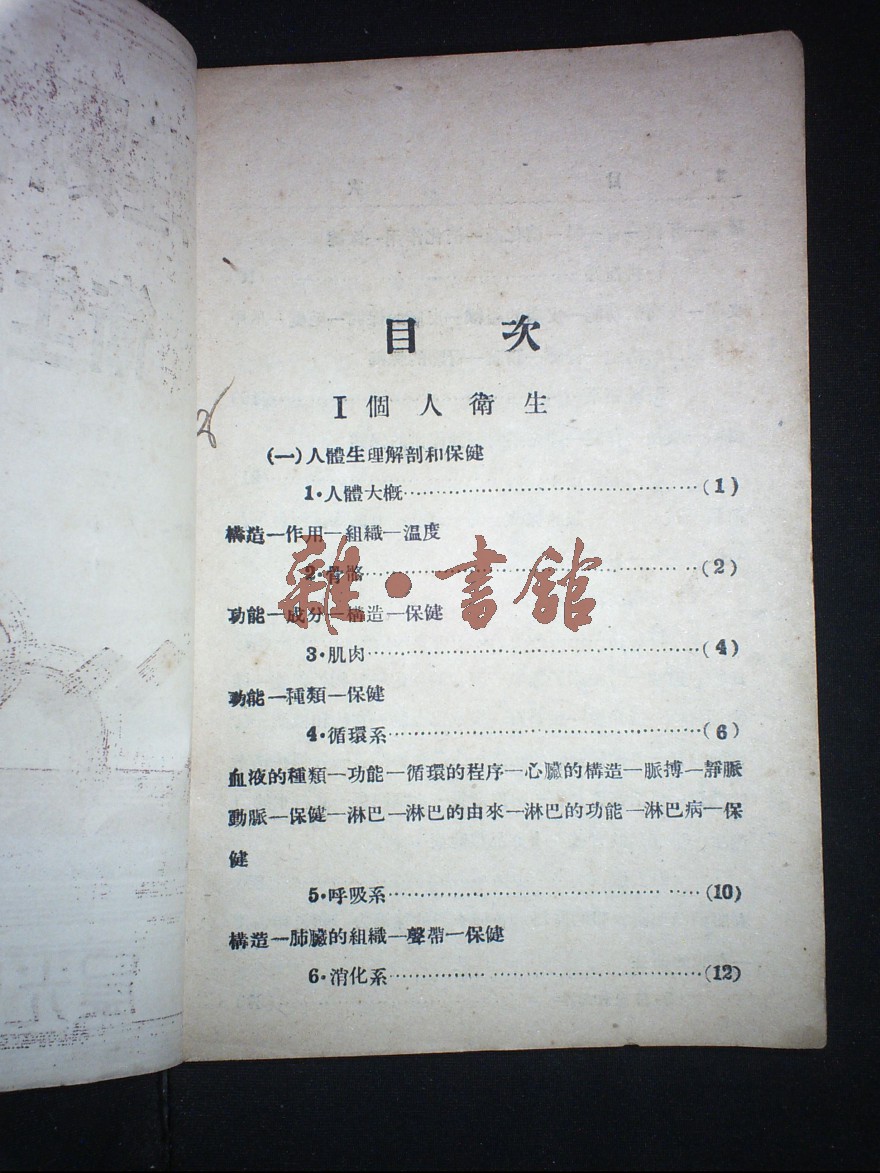 目 次
I 個人衛生
(一)人體生理解剖和保健
1·人體大概……………………………(1)
構造—作用—組織—溫度
2·骨骼……………………………(2)
功能—成分—構造—保健
3·肌肉……………………………(4)
功能—種類—保健
4·循環系……………………………(6)
血液的種類—功能—循環的程序—心臟的構造—脈搏—靜脈
動脈—保健—淋巴—淋巴的由來—淋巴的功能—淋巴病—保
健
5·呼吸系……………………………(10)
構造—肺臟的組織—聲帶—保健
6·消化系……………………………(12)
雜·書館